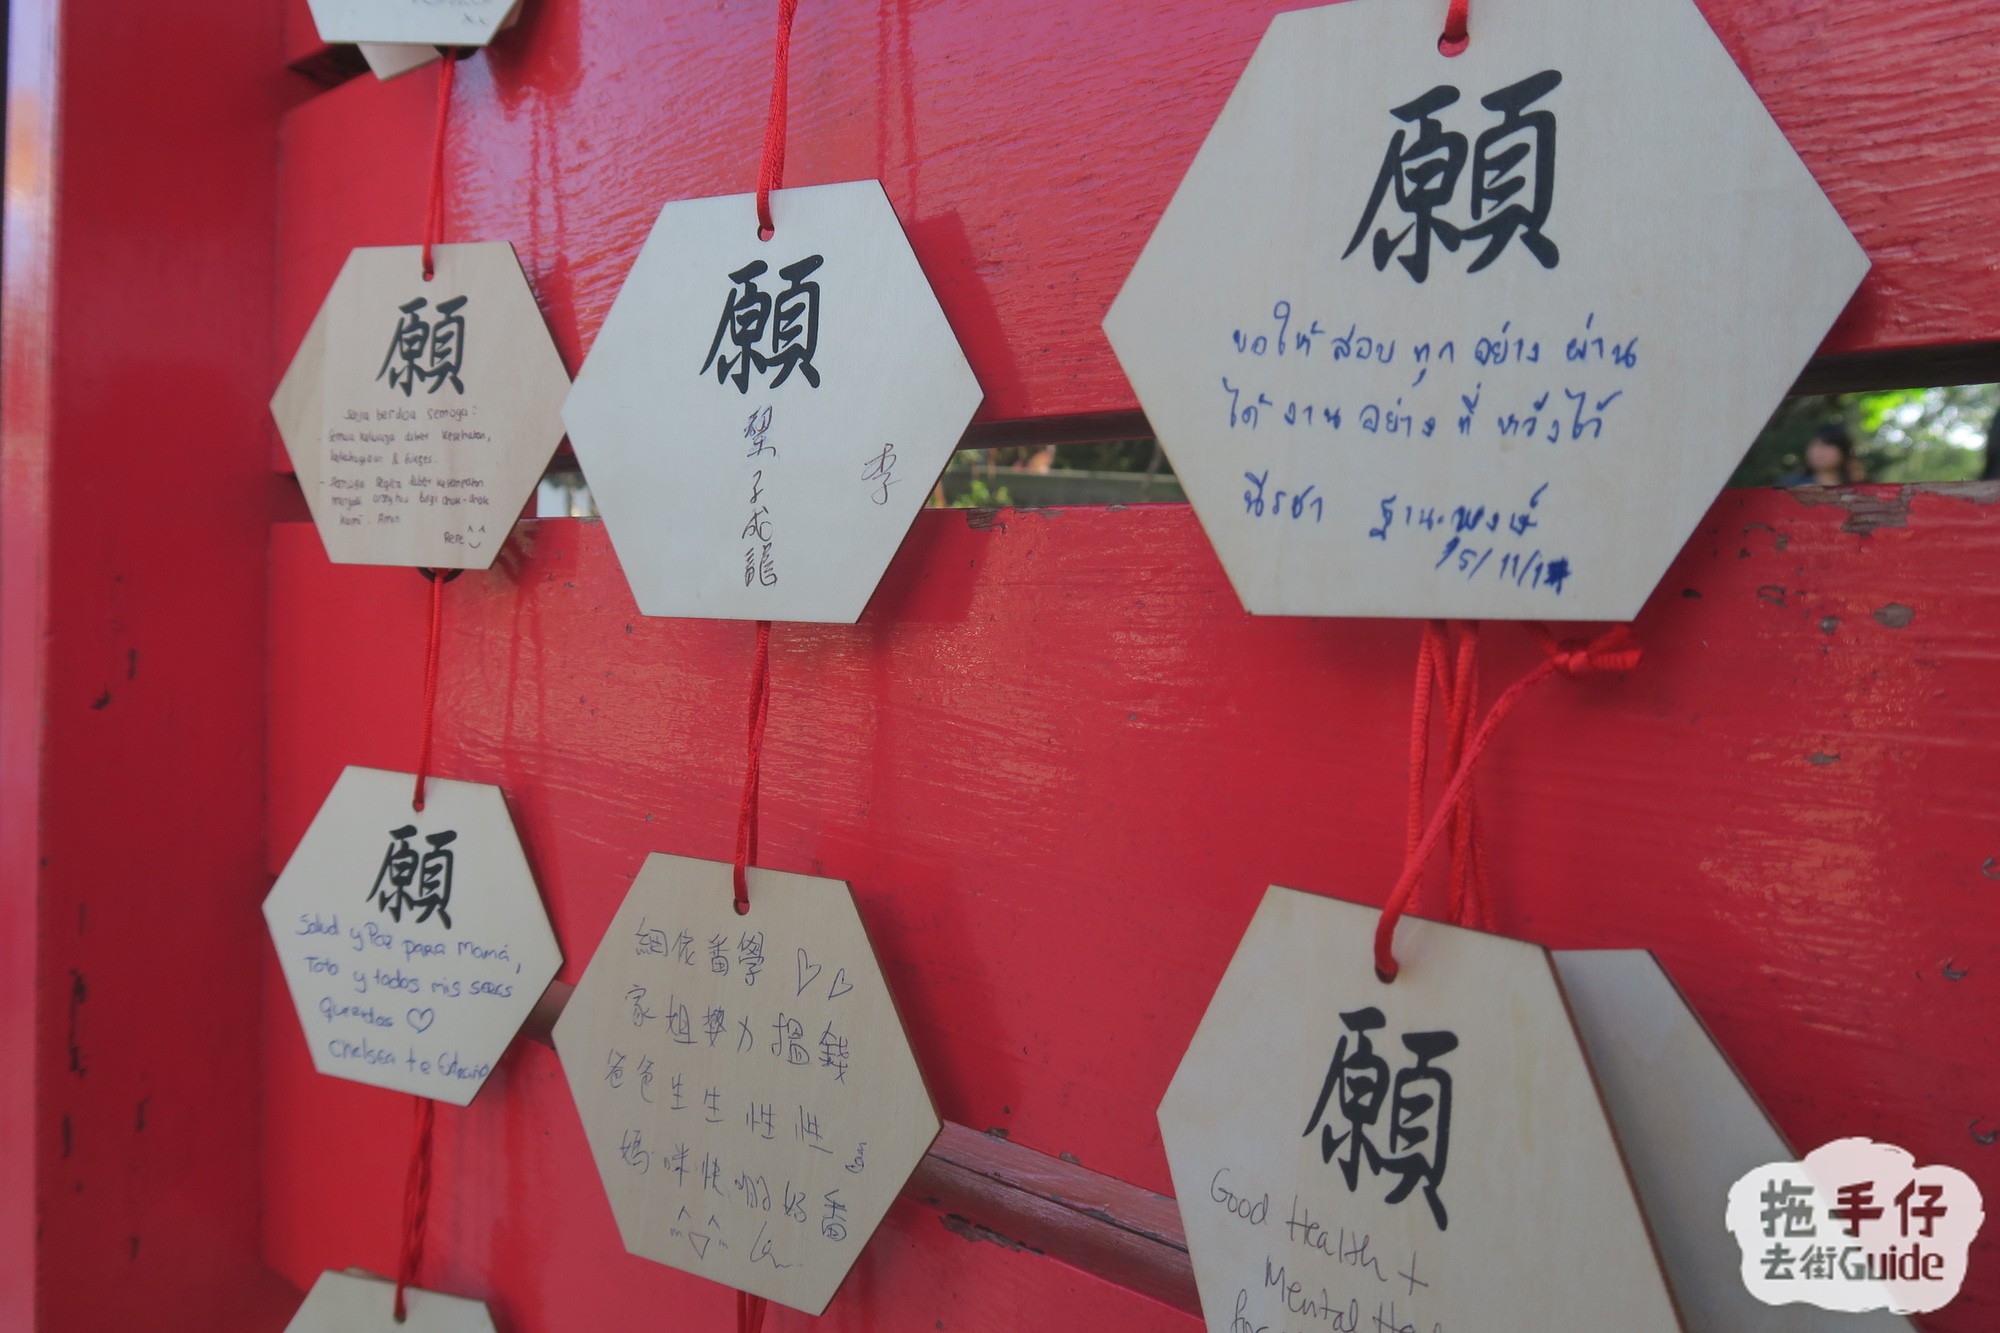 xx
願
Saya berdoa semoga:
- Semua keluarga diberi kesehatan,
kebahagiaan & sukses.
- Semoga segera diberi kesempatan
menjadi orangtua bagi anak-anak
kami. Amin
Rere
願
望
子
成
龍
李
願
ขอให้ สอบ ทุก อย่าง ผ่าน
ได้ งาน อย่าง ที่ หวังไว้
15/11/1
願
Salud y Paz para Mamá,
Toto y todos mis seres
Queridos ♡
Chelsea te
番學 ♡♡
家姐努力搵錢
爸爸生生性性
媽咪快啲好番
願
Good Health +
Mental
for
拖手仔
去街Guide